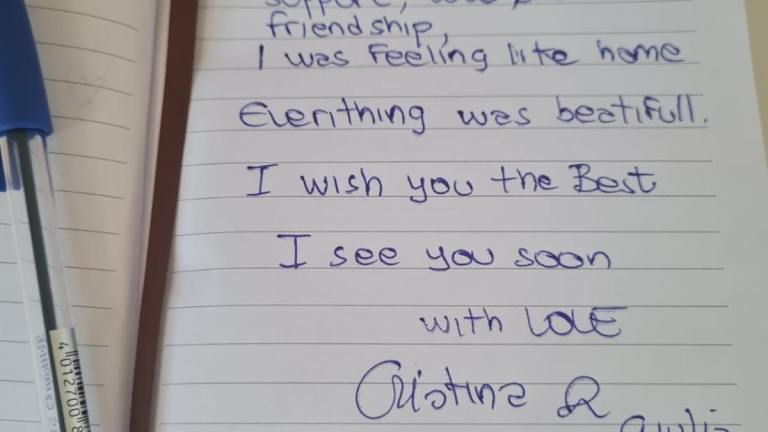 friendship,
I was Feeling like home
Everithing was beatifull.
I wish you the Best
I see you soon
with LOVE
Cristina &
4"012700"